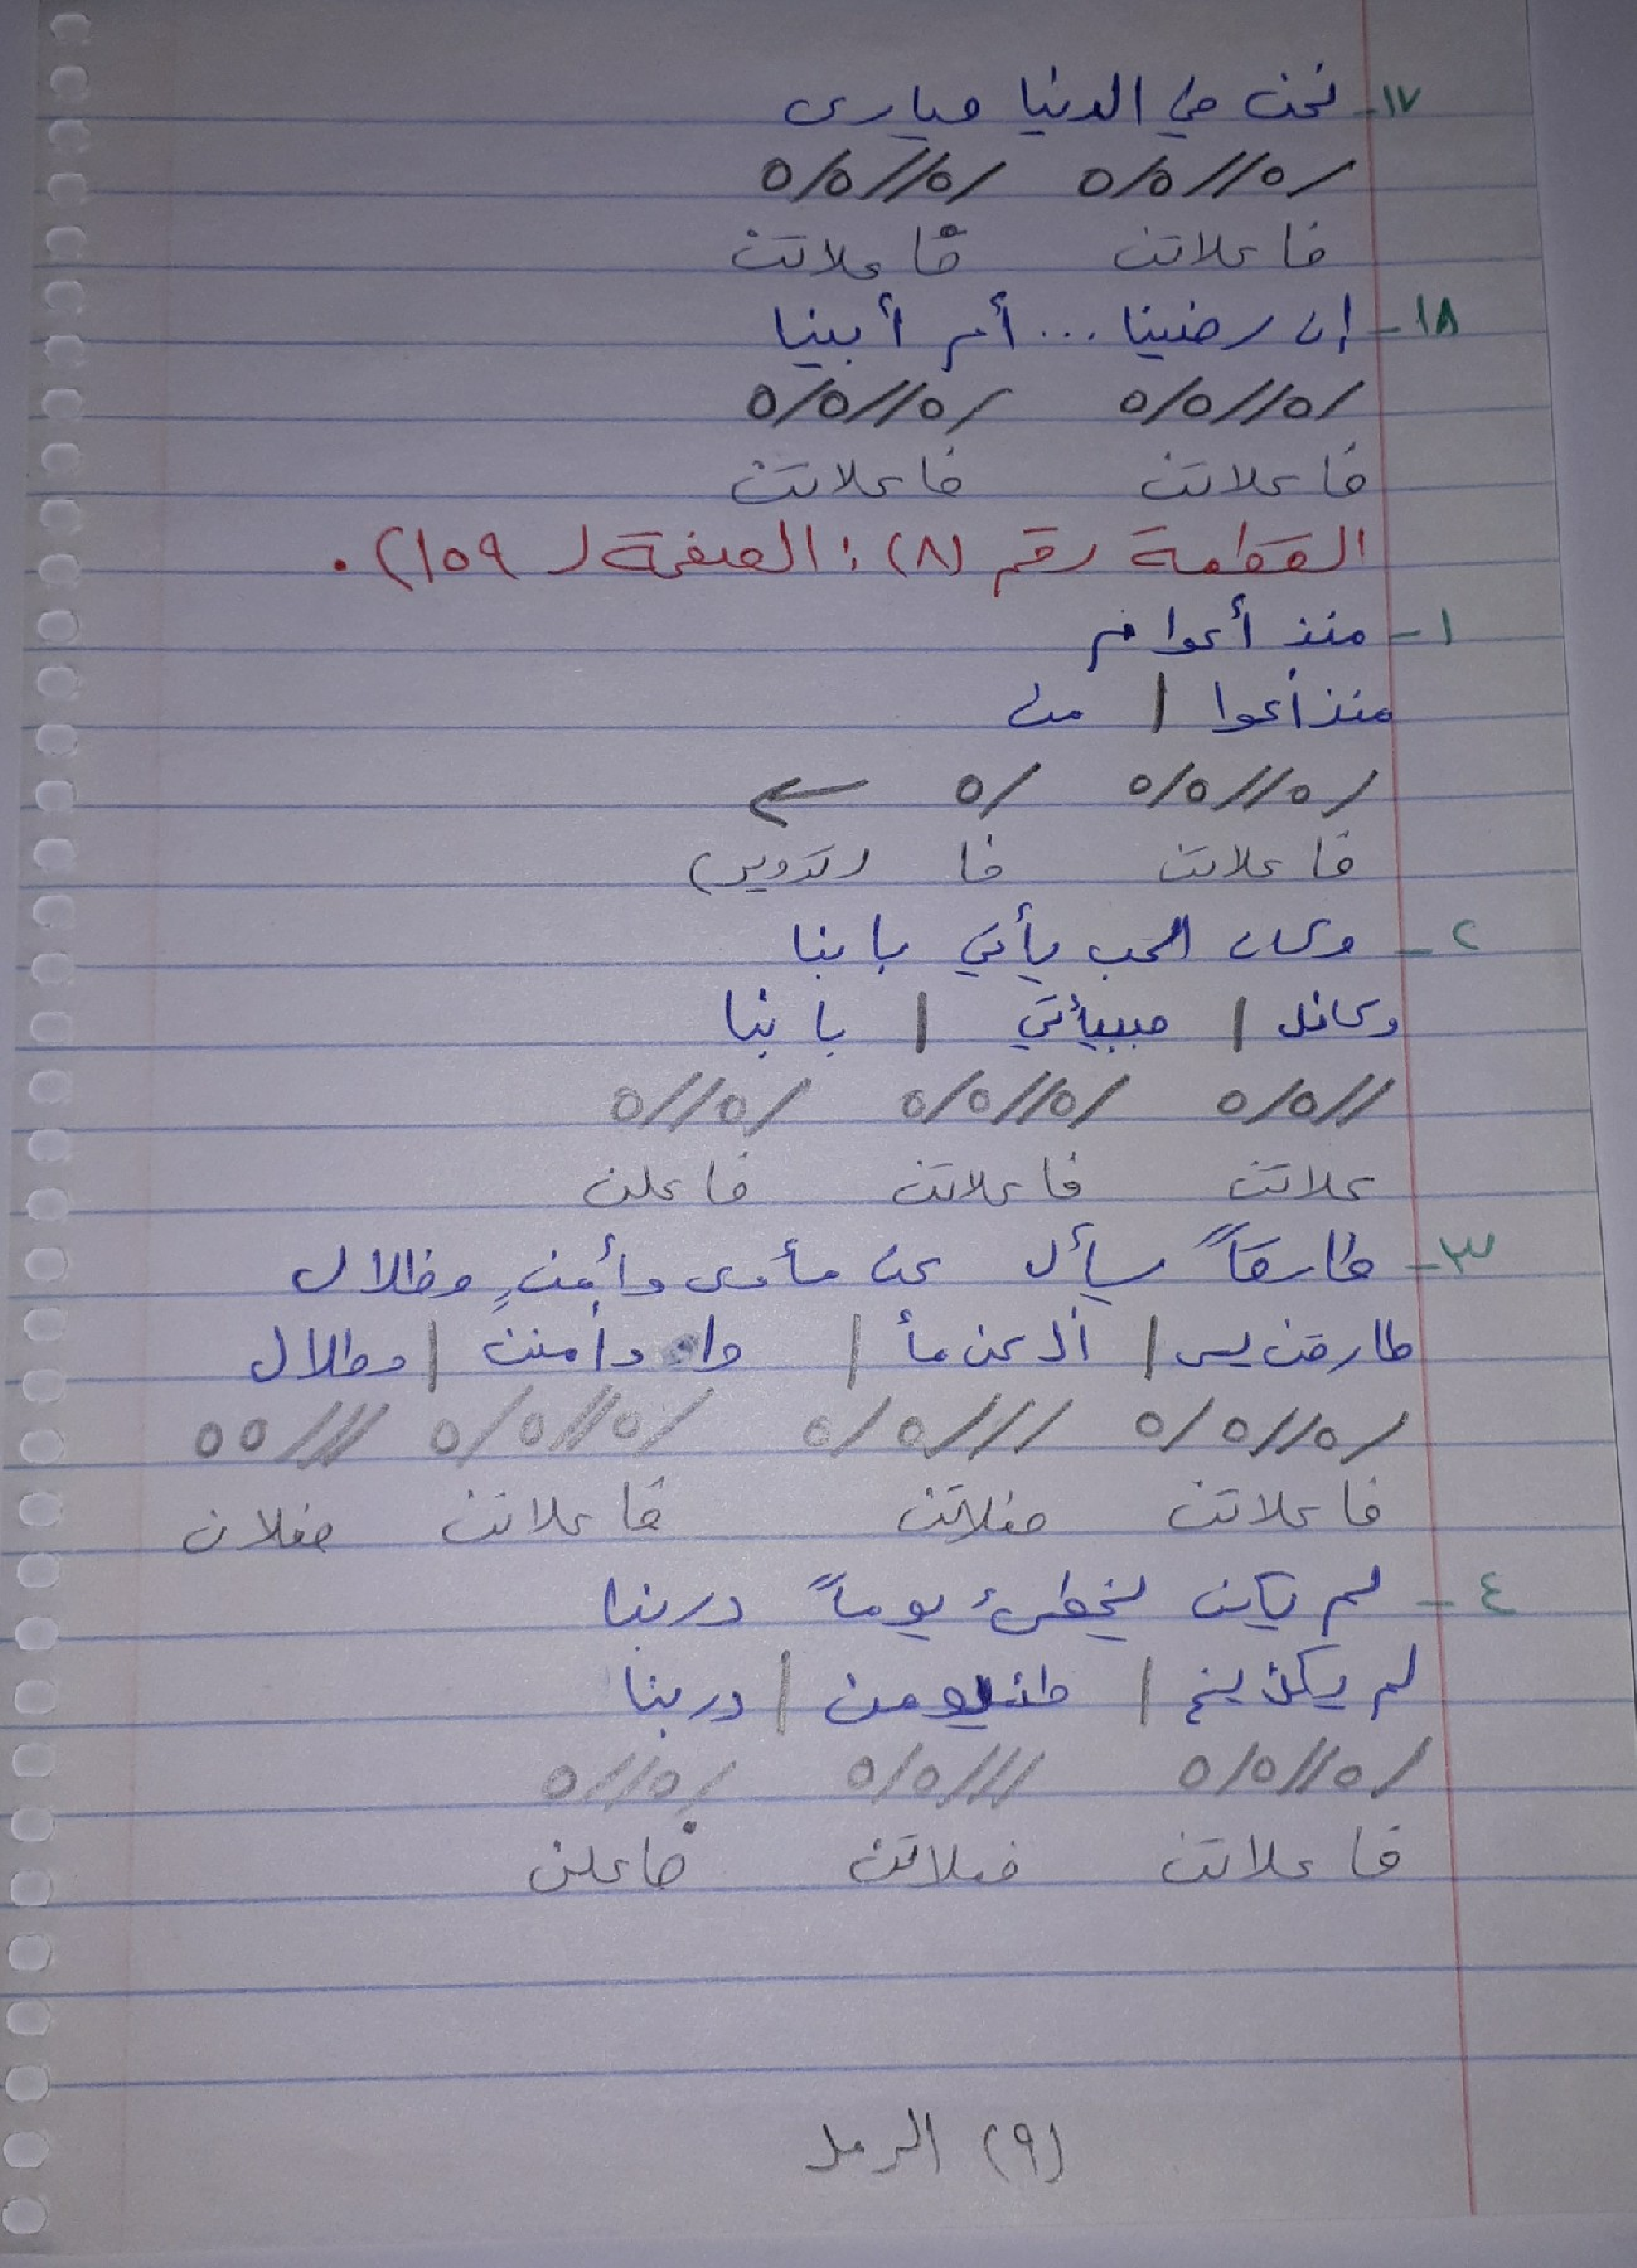 ١٧- نحن في الدنيا حيارى
/٥//٥/٥ /٥//٥/٥
فاعلاتن فاعلاتن
١٨- إن رضينا... أم أبينا
/٥//٥/٥ /٥//٥/٥
فاعلاتن فاعلاتن
القطعة رقم (٨): الصفحة (١٥٩).
١- منذ أعوام
منذ أعوا | من
/٥//٥/٥ /٥ ←
فاعلاتن فا (تدوير)
٢- وكان الحب يأتي بابنا
وكانل | حببيأتي | بابنا
//٥/٥ /٥//٥/٥ /٥//٥
علاتن فاعلاتن فاعلن
٣- طارقاً يسأل عن مأوى وأمنٍ وظلال
طارقن يس | أل عن مأ | وا وأمنن | وظلال
/٥//٥/٥ ///٥/٥ /٥//٥/٥ ///٥٥
فاعلاتن فعلاتن فاعلاتن فعلان
٤- لم يكن يخطئ يوماً دربنا
لم يكن يخ | طئيومن | دربنا
/٥//٥/٥ ///٥/٥ /٥//٥
فاعلاتن فعلاتن فاعلن
(٩) الرمل